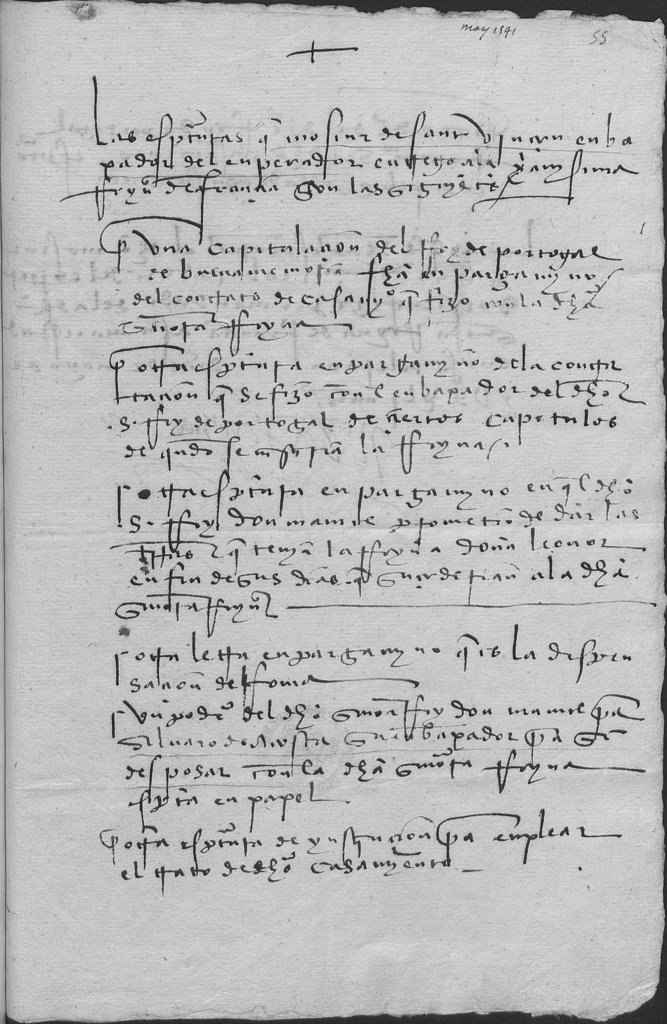 may 1541
55
+
Las escrituras q̃ mosiur de sant vincin enba
xador del enperador entrego a la xp̃anysima
Reyna de françia son las sigui̯e̯tes
p̱ Una capitulaçion del Rey de portogal
de buena memoria fh̃a en pargamyno
del contrato de casamyẽto q̃ fizo con la dh̃a
señora Reyna
p̱ otra escritura en pargamyno de la contra
taçion q̃ se fizo con el enbaxador del dh̃o
S. Rey de portogal de çiertos capitulos
de quãdo se la Reyna
p̱ otra escritura en pargamyno en q̃ el dh̃o
S. Rey don manuel prometio de dar las
trrãs q̃ tenya la Reyna doña leonor
en fin de sus dias q̃ a la dh̃a
señora Reyna
p̱ otra letra en pargamyno q̃ es la dispen
saçion de Roma
p̱ Un poder del dh̃o señor Rey don manuel pã
alvaro de acosta su enbaxador pã se
desposar con la dh̃a señora Reyna
escrita en papel
p̱ otra escritura de ynstruçion pã enplear
el trato de dh̃o casamyento